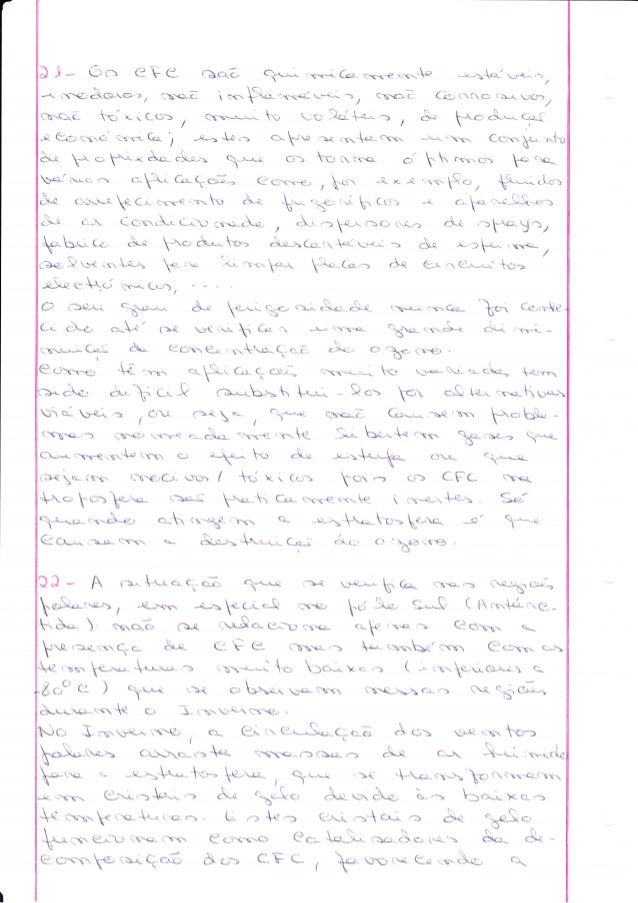 21- Os CFC são quimicamente estáveis,
inodoros, não inflamáveis, não corrosivos,
não tóxicos, muito voláteis, de produção
económica; estes apresentam um conjunto
de propriedades que os torna óptimos para
várias aplicações como, por exemplo, fluidos
de arrefecimento de frigoríficos e aparelhos
de ar condicionado, dispersores de sprays,
fabrico de produtos descartáveis de espuma,
solventes para limpar placas de circuitos
electrónicos, ....
O seu grau de perigosidade nunca foi conhe-
cido até se verificar uma grande dimi-
nuição da concentração do ozono.
Como têm aplicações muito variadas tem
sido difícil substitui-los por alternativas
viáveis, ou seja, que não causem proble-
mas nomeadamente libertem gases que
aumentem o efeito de estufa ou que
sejam nocivos/tóxicos pois os CFC na
troposfera são praticamente inertes. Só
quando atingem a estratosfera é que
causam a destruição do ozono.
22- A situação que se verifica nas regiões
polares, em especial no pólo Sul (Antárc-
tida) não se relaciona apenas com a
presença de CFC mas também com as
temperaturas muito baixas (inferiores a
-80°C) que se observam nessas regiões
durante o Inverno.
No Inverno, a circulação dos ventos
polares arrasta massas de ar húmido
para a estratosfera, que se transformam
em cristais de gelo devido às baixas
temperaturas. Estes cristais de gelo
funcionam como catalisadores da de-
composição dos CFC, favorecendo a